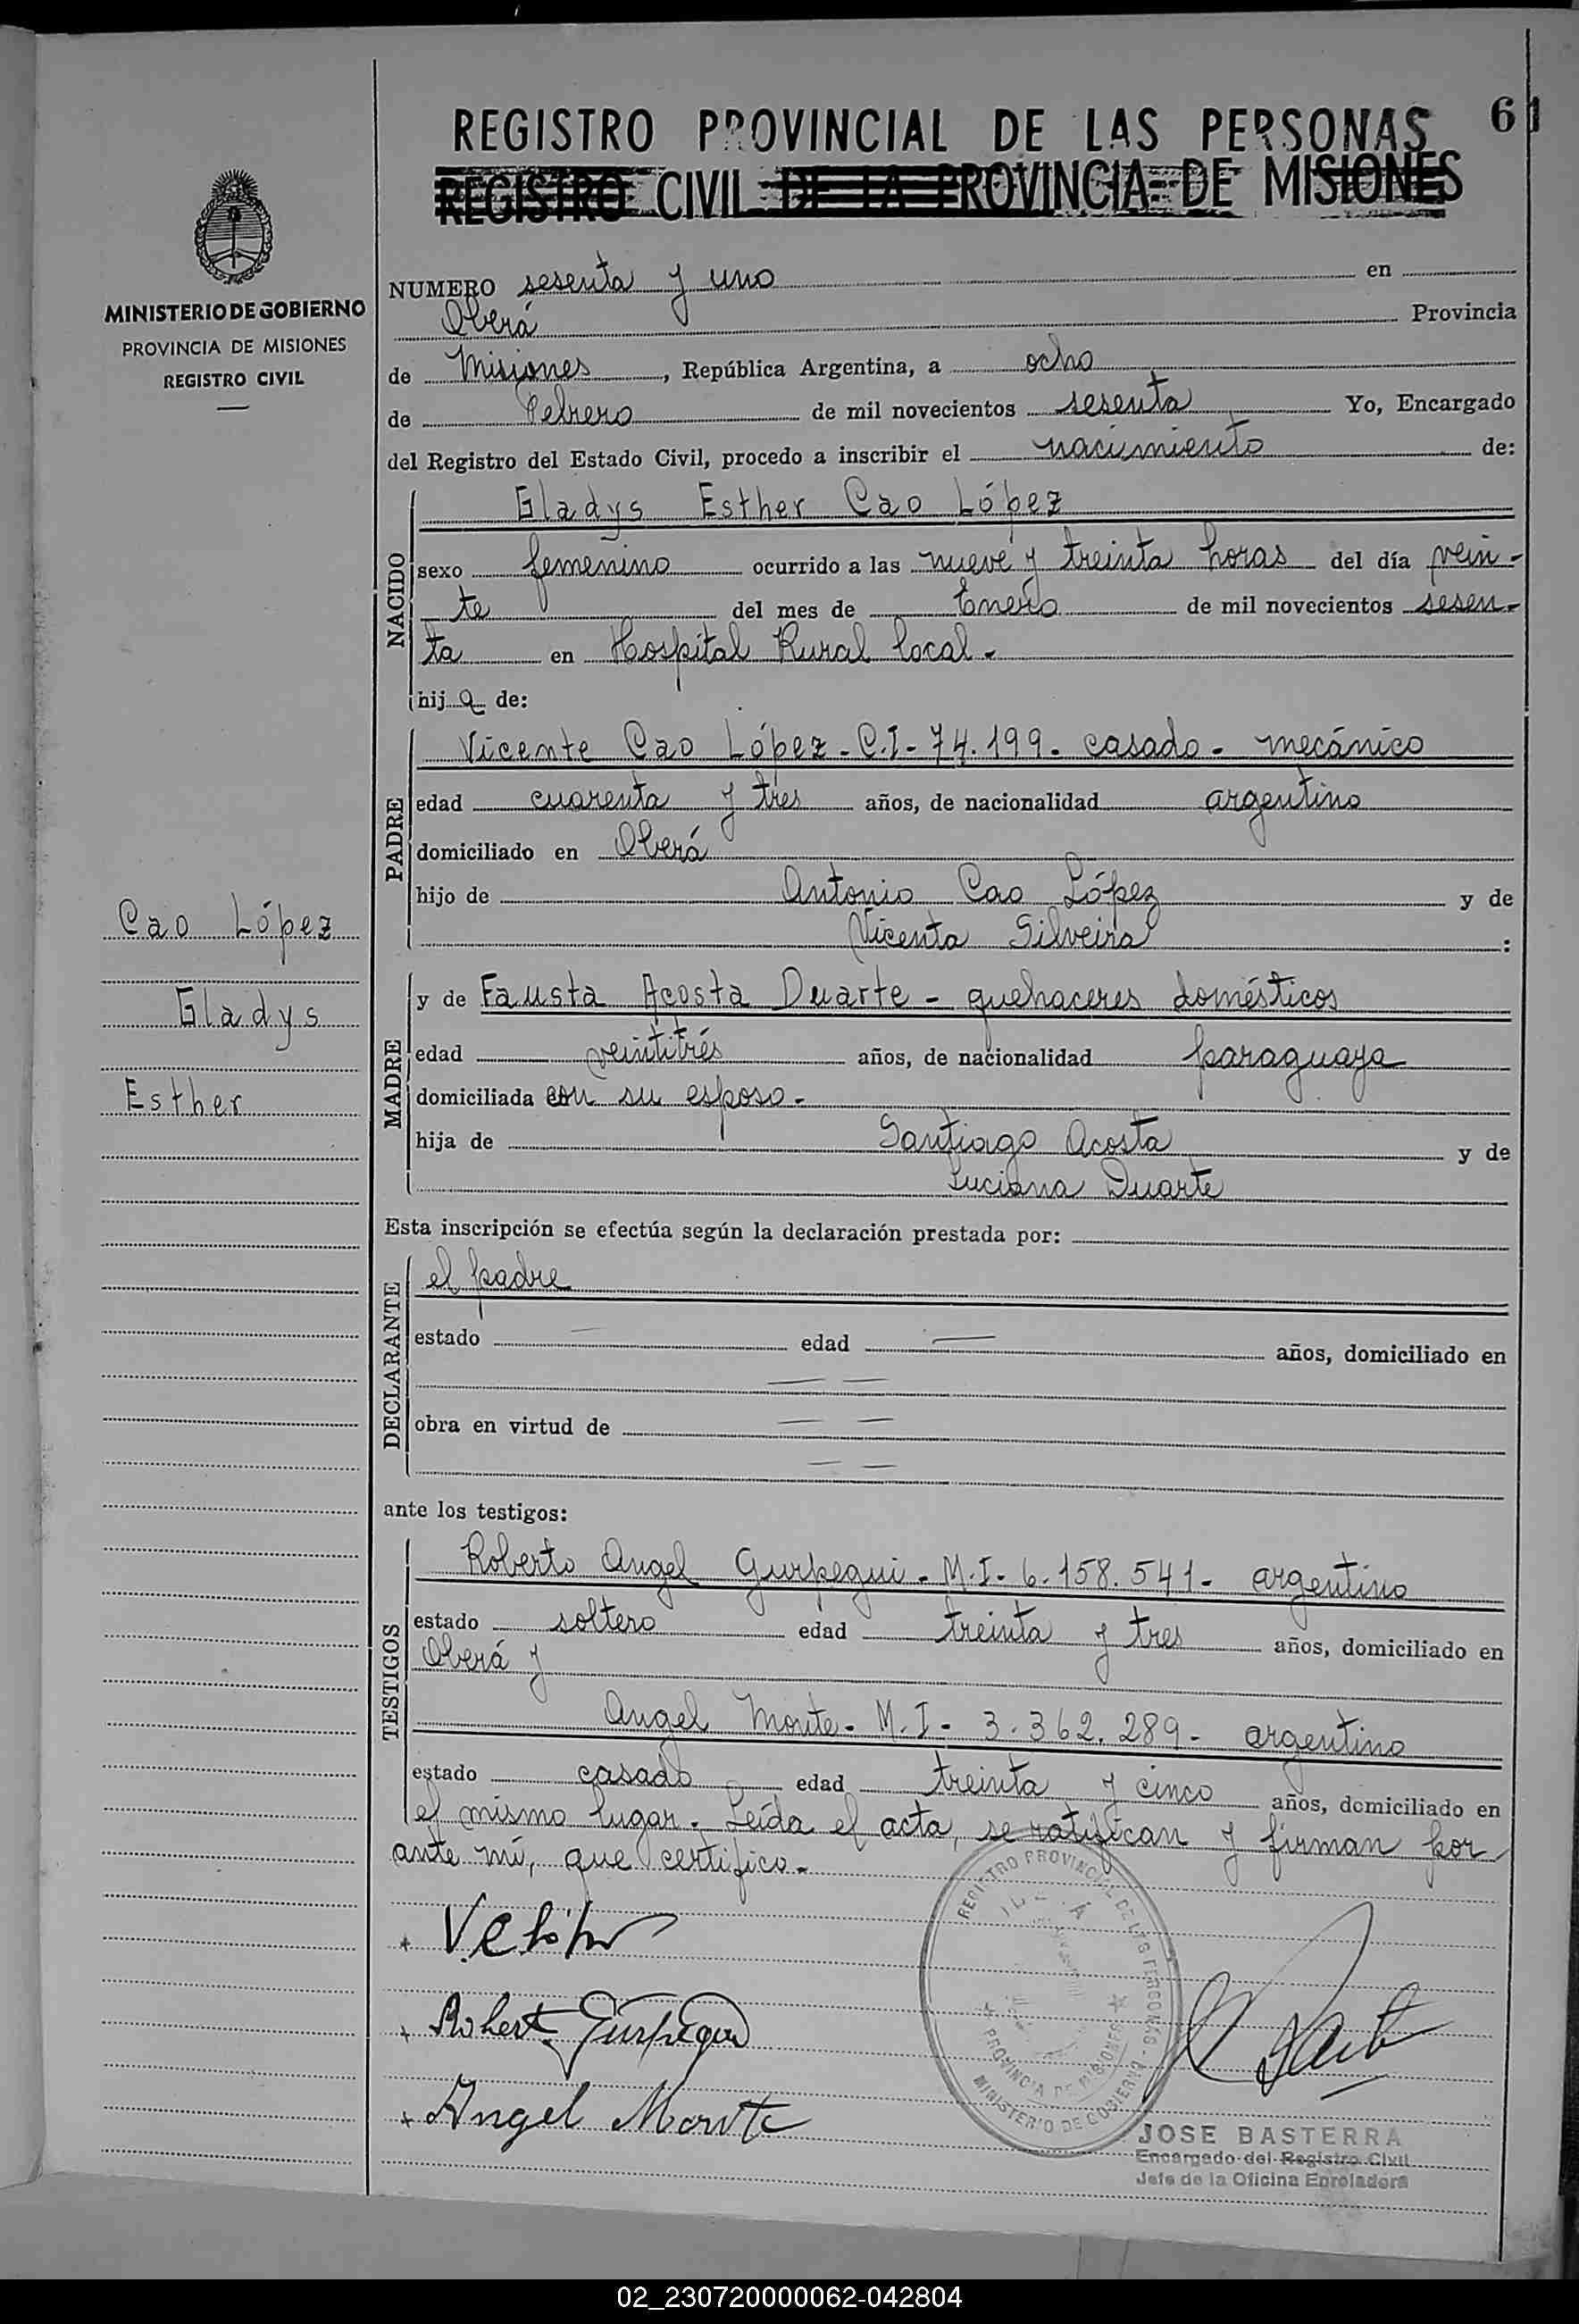 61
REGISTRO PROVINCIAL DE LAS PERSONAS
REGISTRO CIVIL DE LA PROVINCIA DE MISIONES
MINISTERIO DE GOBIERNO
PROVINCIA DE MISIONES
REGISTRO CIVIL
NUMERO sesenta y uno en
Oberá Provincia
de Misiones, República Argentina, a ocho
de Febrero de mil novecientos sesenta Yo, Encargado
del Registro del Estado Civil, procedo a inscribir el nacimiento de:
NACIDO
Gladys Esther Cao López
sexo femenino ocurrido a las nueve y treinta horas del día vein-
te del mes de Enero de mil novecientos sesen-
ta en Hospital Rural local.-
hija de:
PADRE
Vicente Cao López - C.I - 74.199 - casado - mecánico
edad cuarenta y tres años, de nacionalidad argentino
domiciliado en Oberá
hijo de Antonio Cao López y de
Vicenta Silveira :
Cao López
Gladys
Esther
MADRE
y de Fausta Acosta Duarte - quehaceres domésticos
edad veintitrés años, de nacionalidad paraguaya
domiciliada con su esposo.-
hija de Santiago Acosta y de
Luciana Duarte
Esta inscripción se efectúa según la declaración prestada por:
DECLARANTE
el padre
estado — edad — años, domiciliado en
— —
obra en virtud de — —
— —
ante los testigos:
TESTIGOS
Roberto Angel Gurpegui - M.I - 6.158.541 - argentino
estado soltero edad treinta y tres años, domiciliado en
Oberá y
Angel Monte - M.I - 3.362.289 - argentino
estado casado edad treinta y cinco años, domiciliado en
el mismo lugar. Leída el acta, se ratifican y firman por
ante mí, que certifico.-
REGISTRO PROVINCIAL DE LAS PERSONAS
PROVINCIA DE MISIONES
MINISTERIO DE GOBIERNO
Robert Gurpegui
Angel Monte
JOSE BASTERRA
Encargado del Registro Civil
Jefe de la Oficina Enroladora
02_230720000062-042804